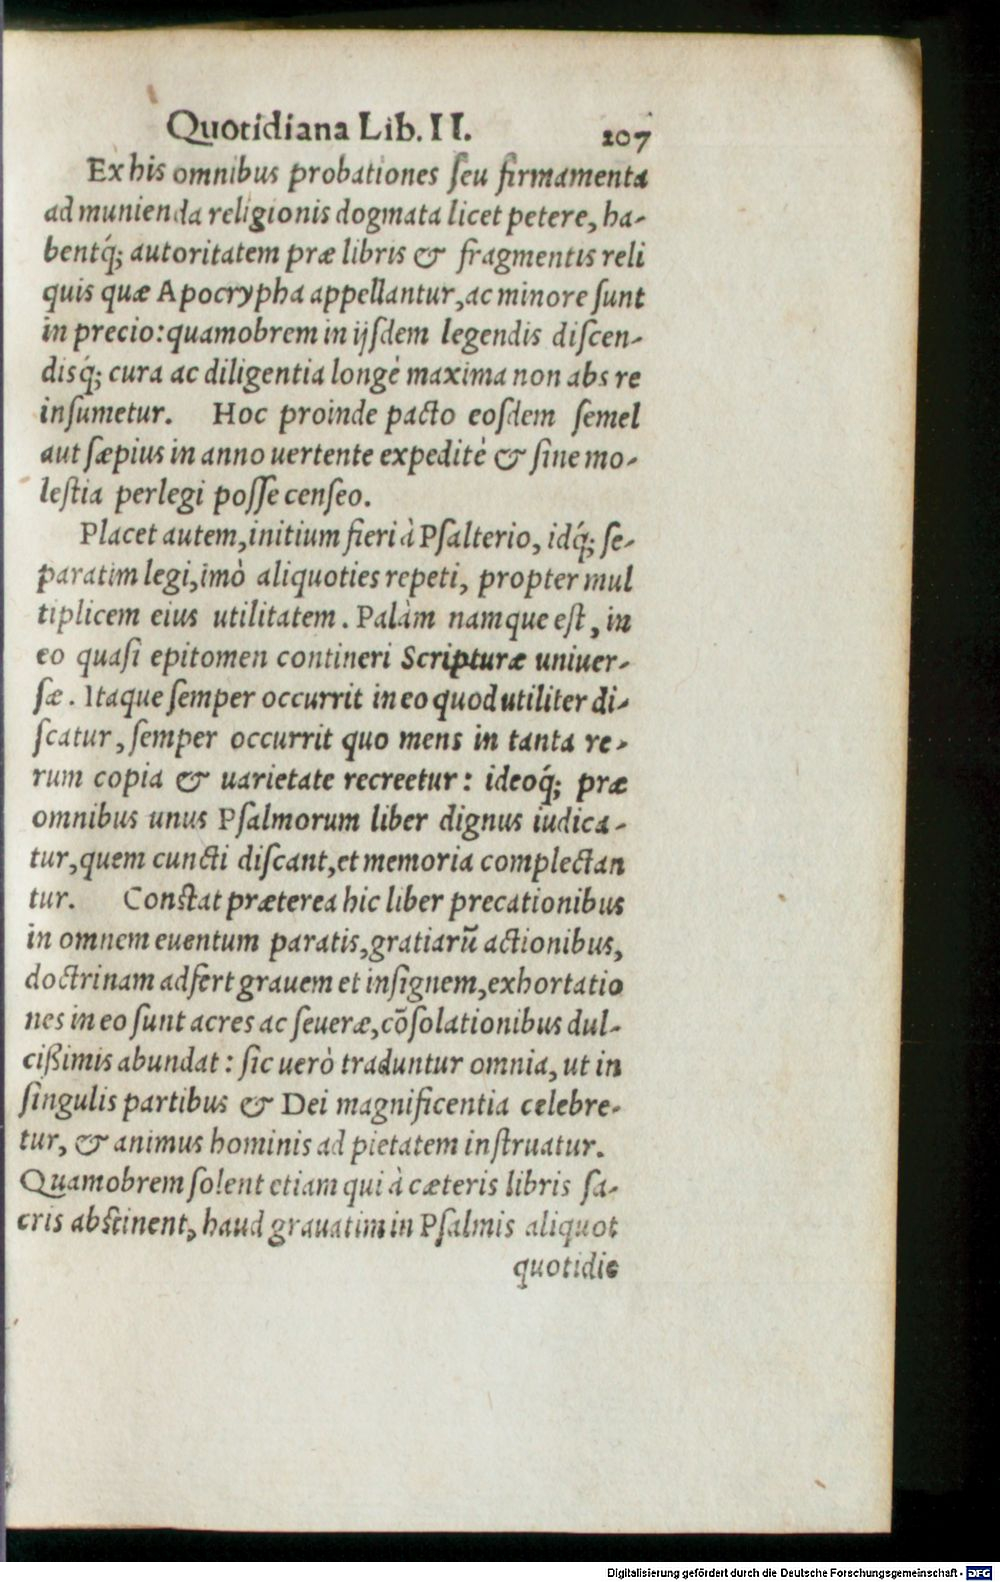 Quotidiana Lib. II. 207
Ex his omnibus probationes ſeu firmamenta
ad munienda religionis dogmata licet petere, ha-
bentq́; autoritatem præ libris & fragmentis reli
quis quæ Apocrypha appellantur, ac minore ſunt
in precio: quamobrem in ijſdem legendis diſcen-
disq́; cura ac diligentia longè maxima non abs re
inſumetur. Hoc proinde pacto eoſdem ſemel
aut ſæpius in anno uertente expeditè & ſine mo-
leſtia perlegi poſſe cenſeo.
Placet autem, initium fieri à Pſalterio, idq́; ſe-
paratim legi, imò aliquoties repeti, propter mul
tiplicem eius utilitatem. Palàm namque eſt, in
eo quaſi epitomen contineri Scripturæ uniuer-
ſæ. Itaque ſemper occurrit in eo quod utiliter di-
ſcatur, ſemper occurrit quo mens in tanta re-
rum copia & uarietate recreetur: ideoq́; præ
omnibus unus Pſalmorum liber dignus iudica-
tur, quem cuncti diſcant, et memoria complectan
tur. Conſtat præterea hic liber precationibus
in omnem euentum paratis, gratiarū actionibus,
doctrinam adfert grauem et inſignem, exhortatio
nes in eo ſunt acres ac ſeueræ, cōſolationibus dul-
cißimis abundat: ſic uerò traduntur omnia, ut in
ſingulis partibus & Dei magnificentia celebre-
tur, & animus hominis ad pietatem inſtruatur.
Quamobrem ſolent etiam qui à cæteris libris ſa-
cris abſtinent, haud grauatim in Pſalmis aliquot
quotidie
Digitalisierung gefördert durch die Deutsche Forschungsgemeinschaft - DFG